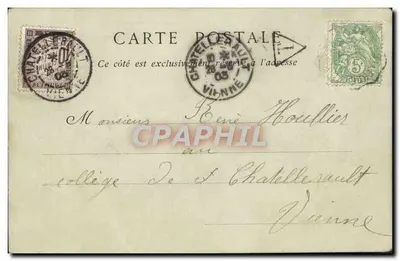 CARTE POSTALE
Ce côté est exclusivement réservé à l'adresse
CHATELLERAULT
VIENNE
CHATELLERAULT
03
VIENNE
5
CPRPHOTOS
Monsieur René Houllier
au
collège de Chatellerault
Vienne